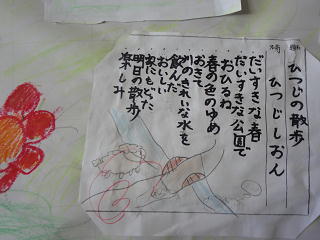 ひつじの散歩
ひつじしおん
だいすきな春
だいすきな公園で
おひるね
春の色のゆめ
おきて
川のきれいな水を
飲んだ
おいしい
家にもどった
明日の散歩
楽しみ